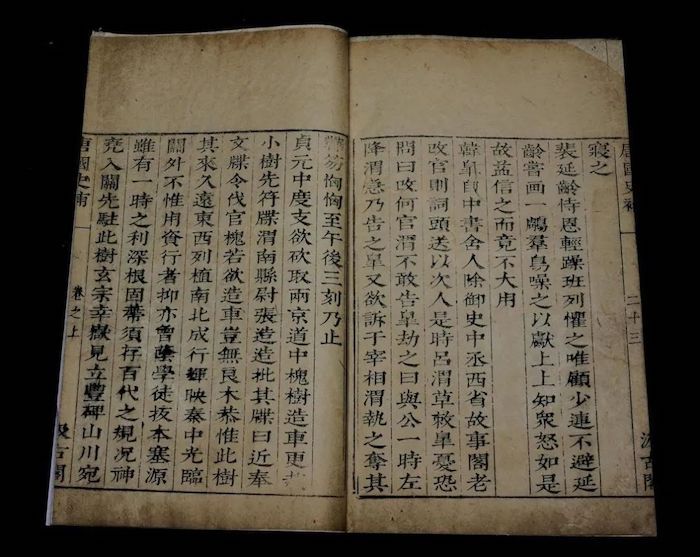 唐國史補
二十三
汲古閣
寢之
裴延齡恃恩輕躁班列懼之唯顧少連不避延
齡嘗画一鵰羣鳥噪之以獻上上知衆怒如是
故益信之而竟不大用
韓臯自中書舍人除御史中丞西省故事閣老
改官則詞頭送以次人是時呂渭草敕臯憂恐
問曰改何官渭不敢告臯劫之曰與公一時左
降渭急乃告之臯又欲訴于宰相渭執之奪其
鞾笏恟恟至午後三刻乃止
貞元中度支欲砍取兩京道中槐樹造車更栽
小樹先符牒渭南縣尉張造造批其牒曰近奉
文牒令伐官槐若欲造車豈無良木恭惟此樹
其來久遠東西列植南北成行輝映秦中光臨
關外不惟用資行者抑亦曾蔭學徒拔本塞源
雖有一時之利深根固蔕須存百代之規况神
堯入關先駐此樹玄宗幸嶽見立豐碑山川宛
唐國史補
卷之上
汲古閣